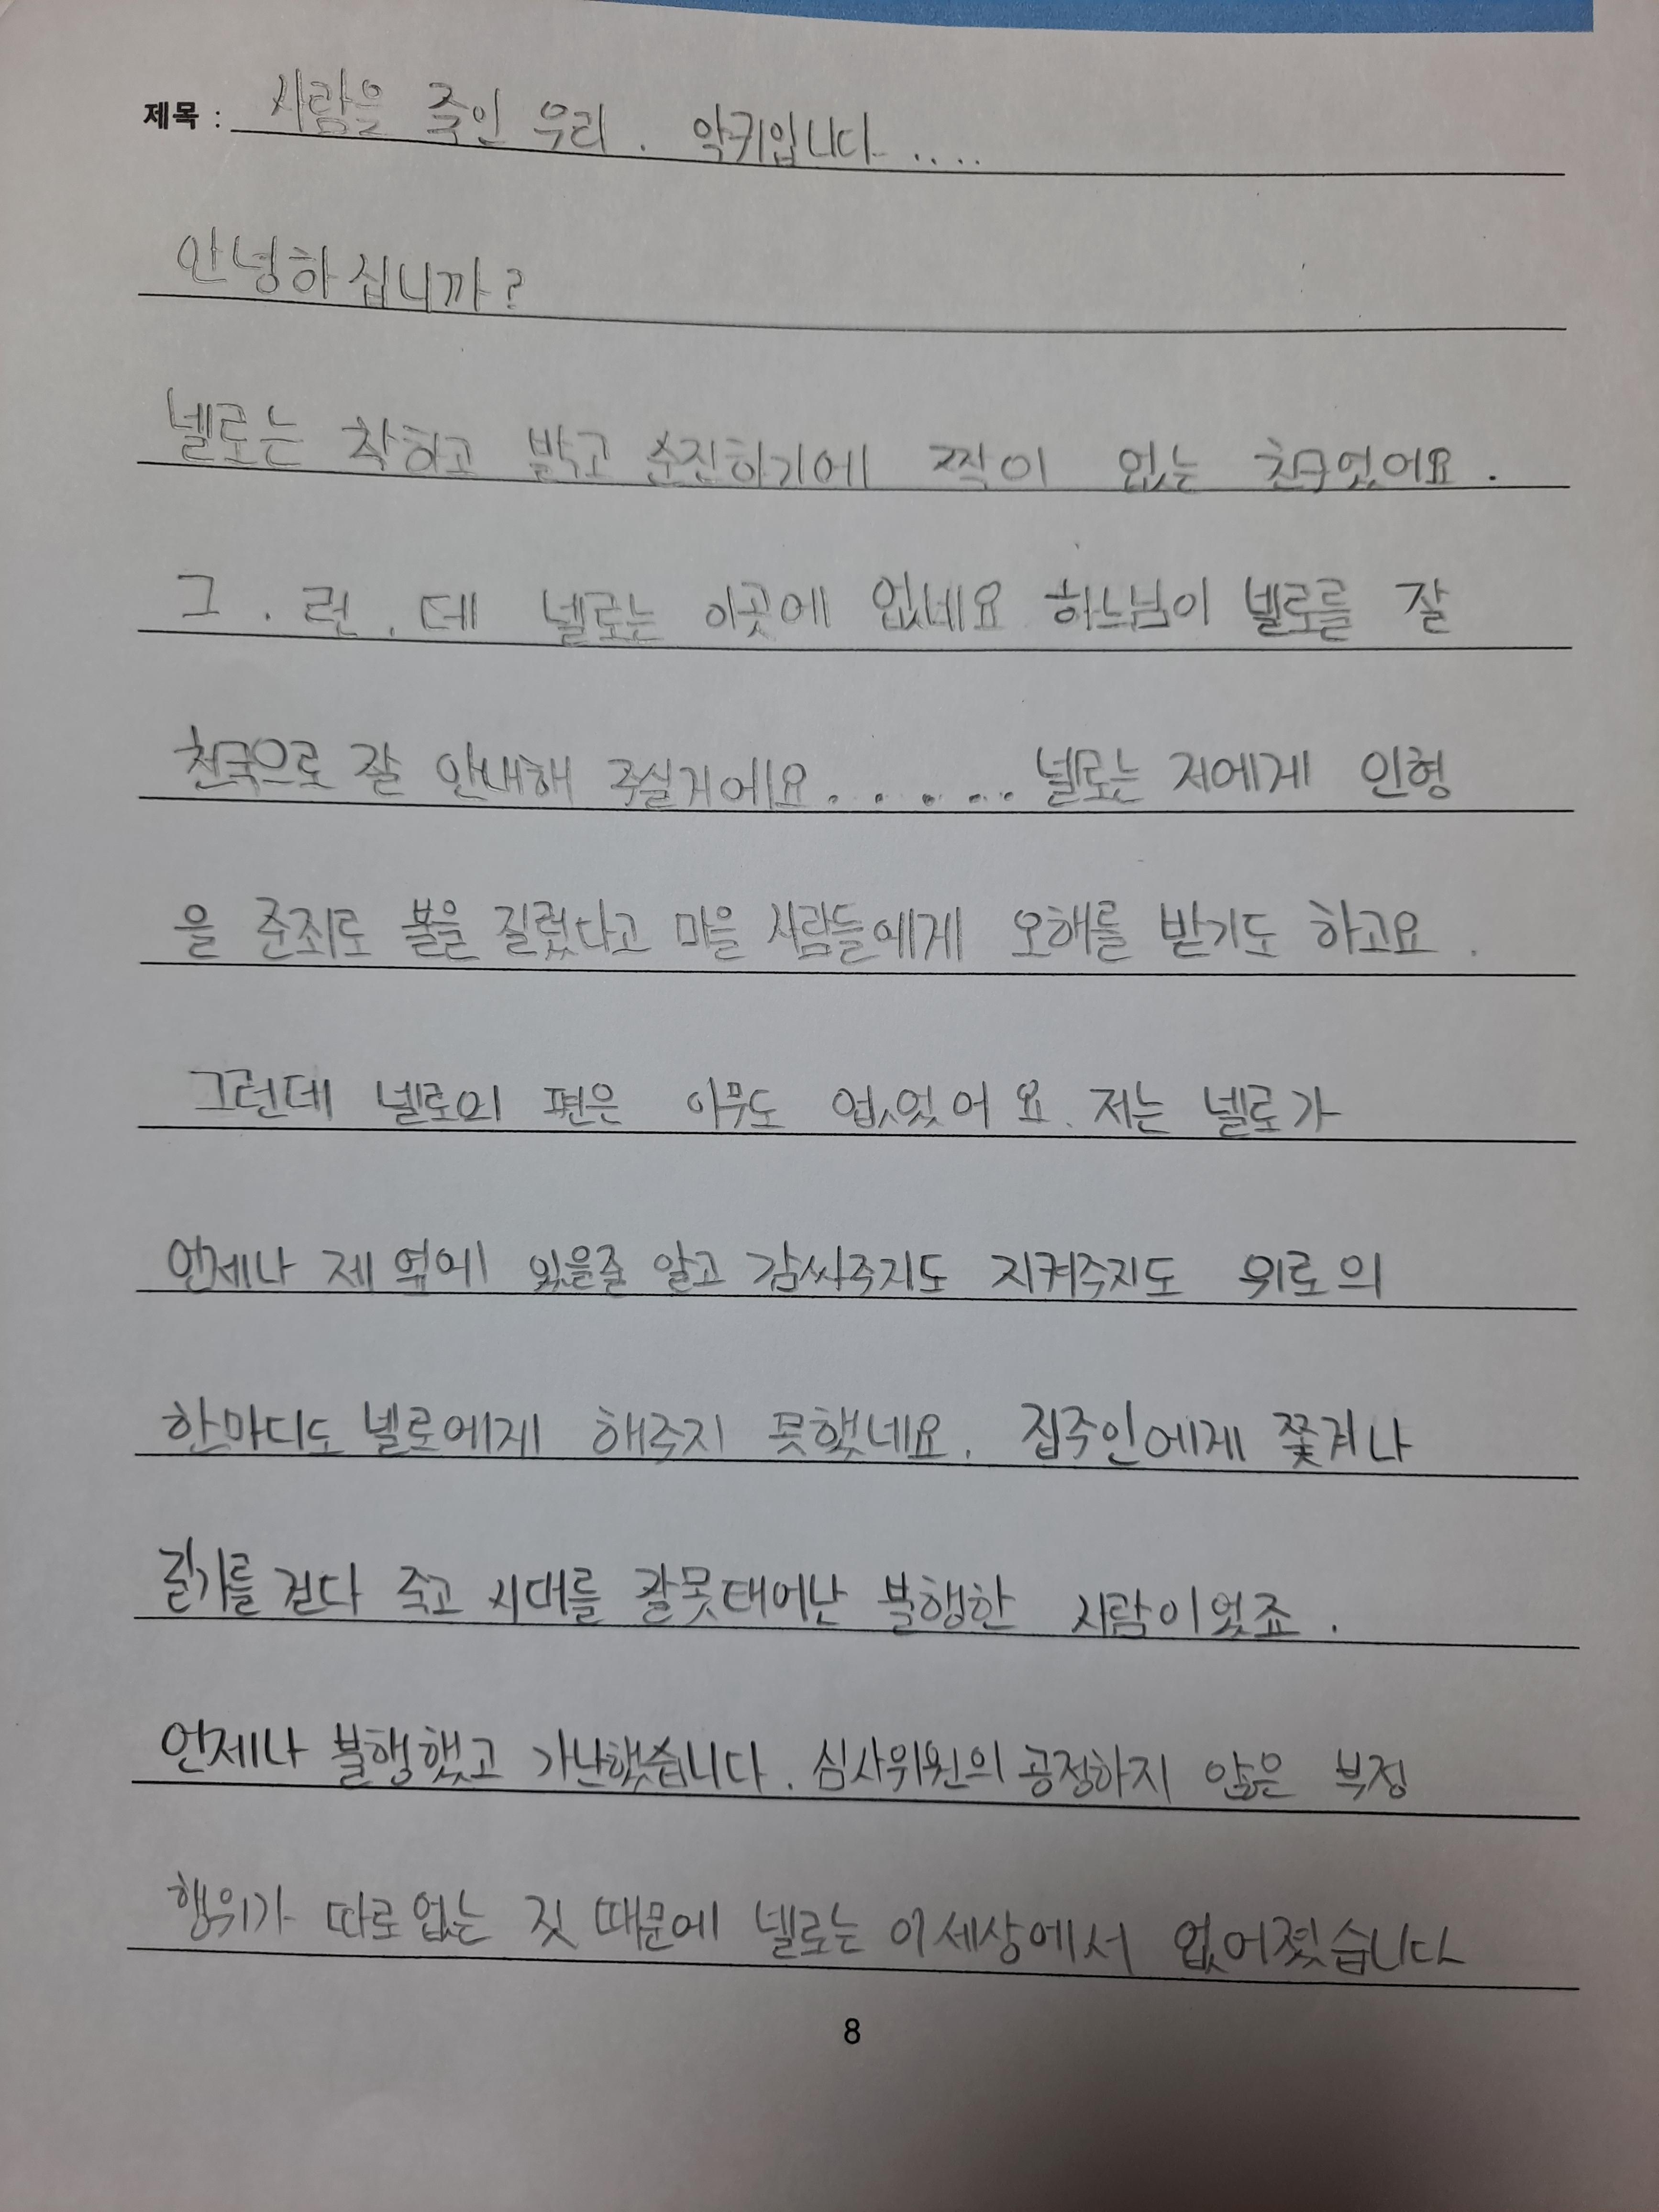 제목 : 사람을 죽인 우리. 악귀입니다....
안녕하십니까?
넬로는 착하고 밝고 순진하기에 짝이 없는 친구었어요.
그. 런. 데 넬로는 이곳에 없네요 하느님이 넬로를 잘
천국으로 잘 안내해 주실거에요...... 넬로는 저에게 인형
을 준죄로 불을 질렀다고 마을 사람들에게 오해를 받기도 하고요.
그런데 넬로의 편은 아무도 없었어요. 저는 넬로가
언제나 제 옆에 있을줄 알고 감싸주지도 지켜주지도 위로의
한마디도 넬로에게 해주지 못했네요. 집주인에게 쫓겨나
길가를 걷다 죽고 시대를 잘못태어난 불행한 사람이었죠.
언제나 불행했고 가난했습니다. 심사위원의 공정하지 않은 부정
행위가 따로없는 짓 때문에 넬로는 이세상에서 없어졌습니다
8